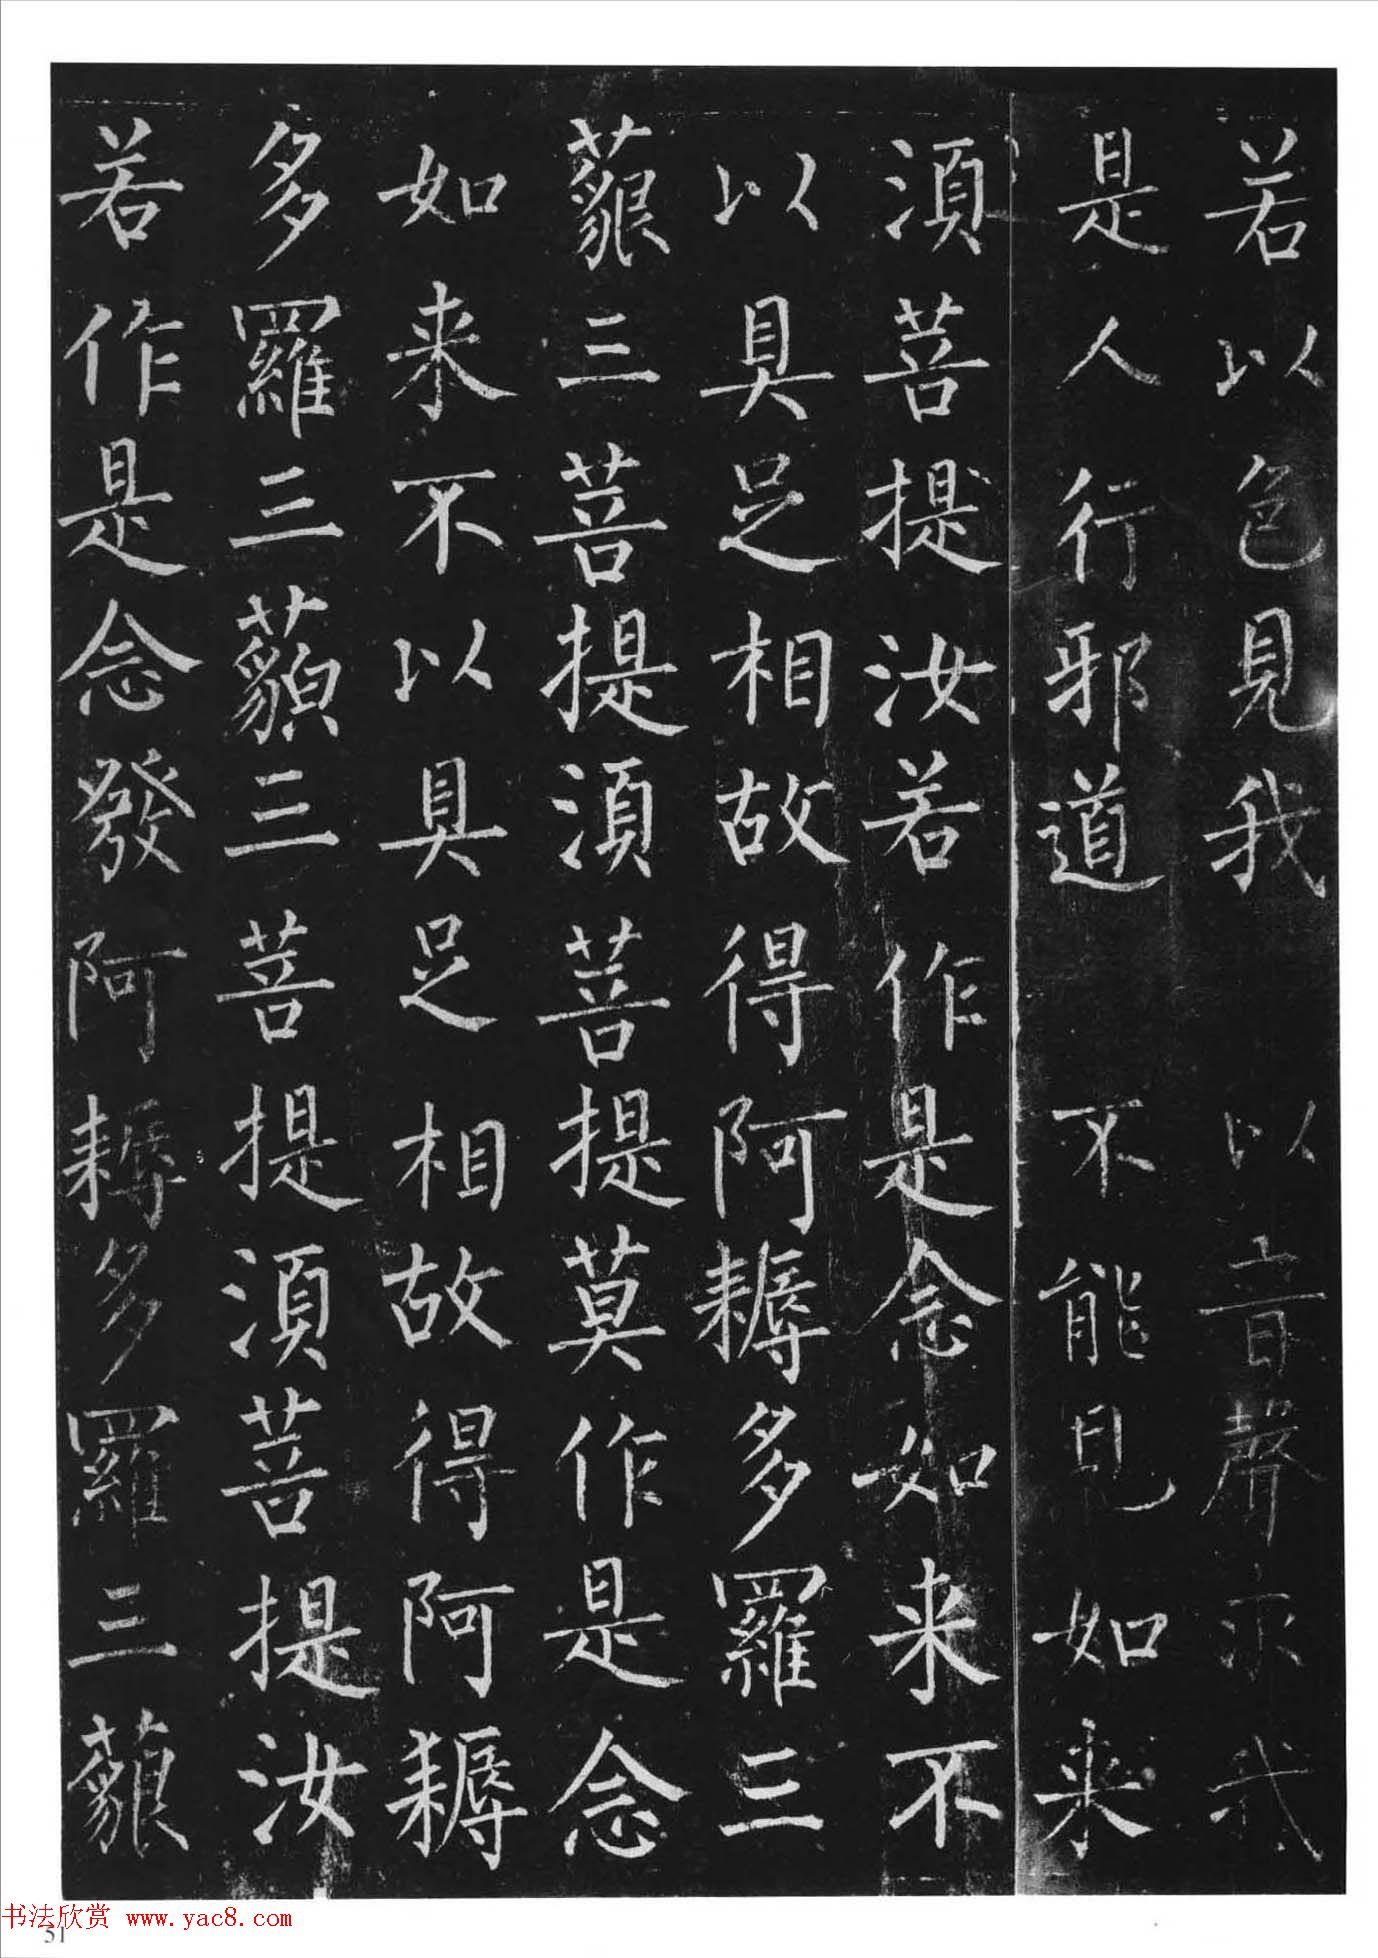 若以色見我 以音聲求我
是人行邪道 不能見如来
湏菩提汝若作是念如来不
以具足相故得阿耨多羅三
藐三菩提湏菩提莫作是念
如来不以具足相故得阿耨
多羅三藐三菩提湏菩提汝
若作是念發阿耨多羅三藐
书法欣赏 www.yac8.com
51